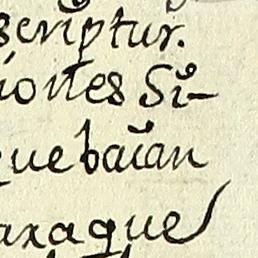 scriptur.
iones Sĩ-
que baĩan
axaque